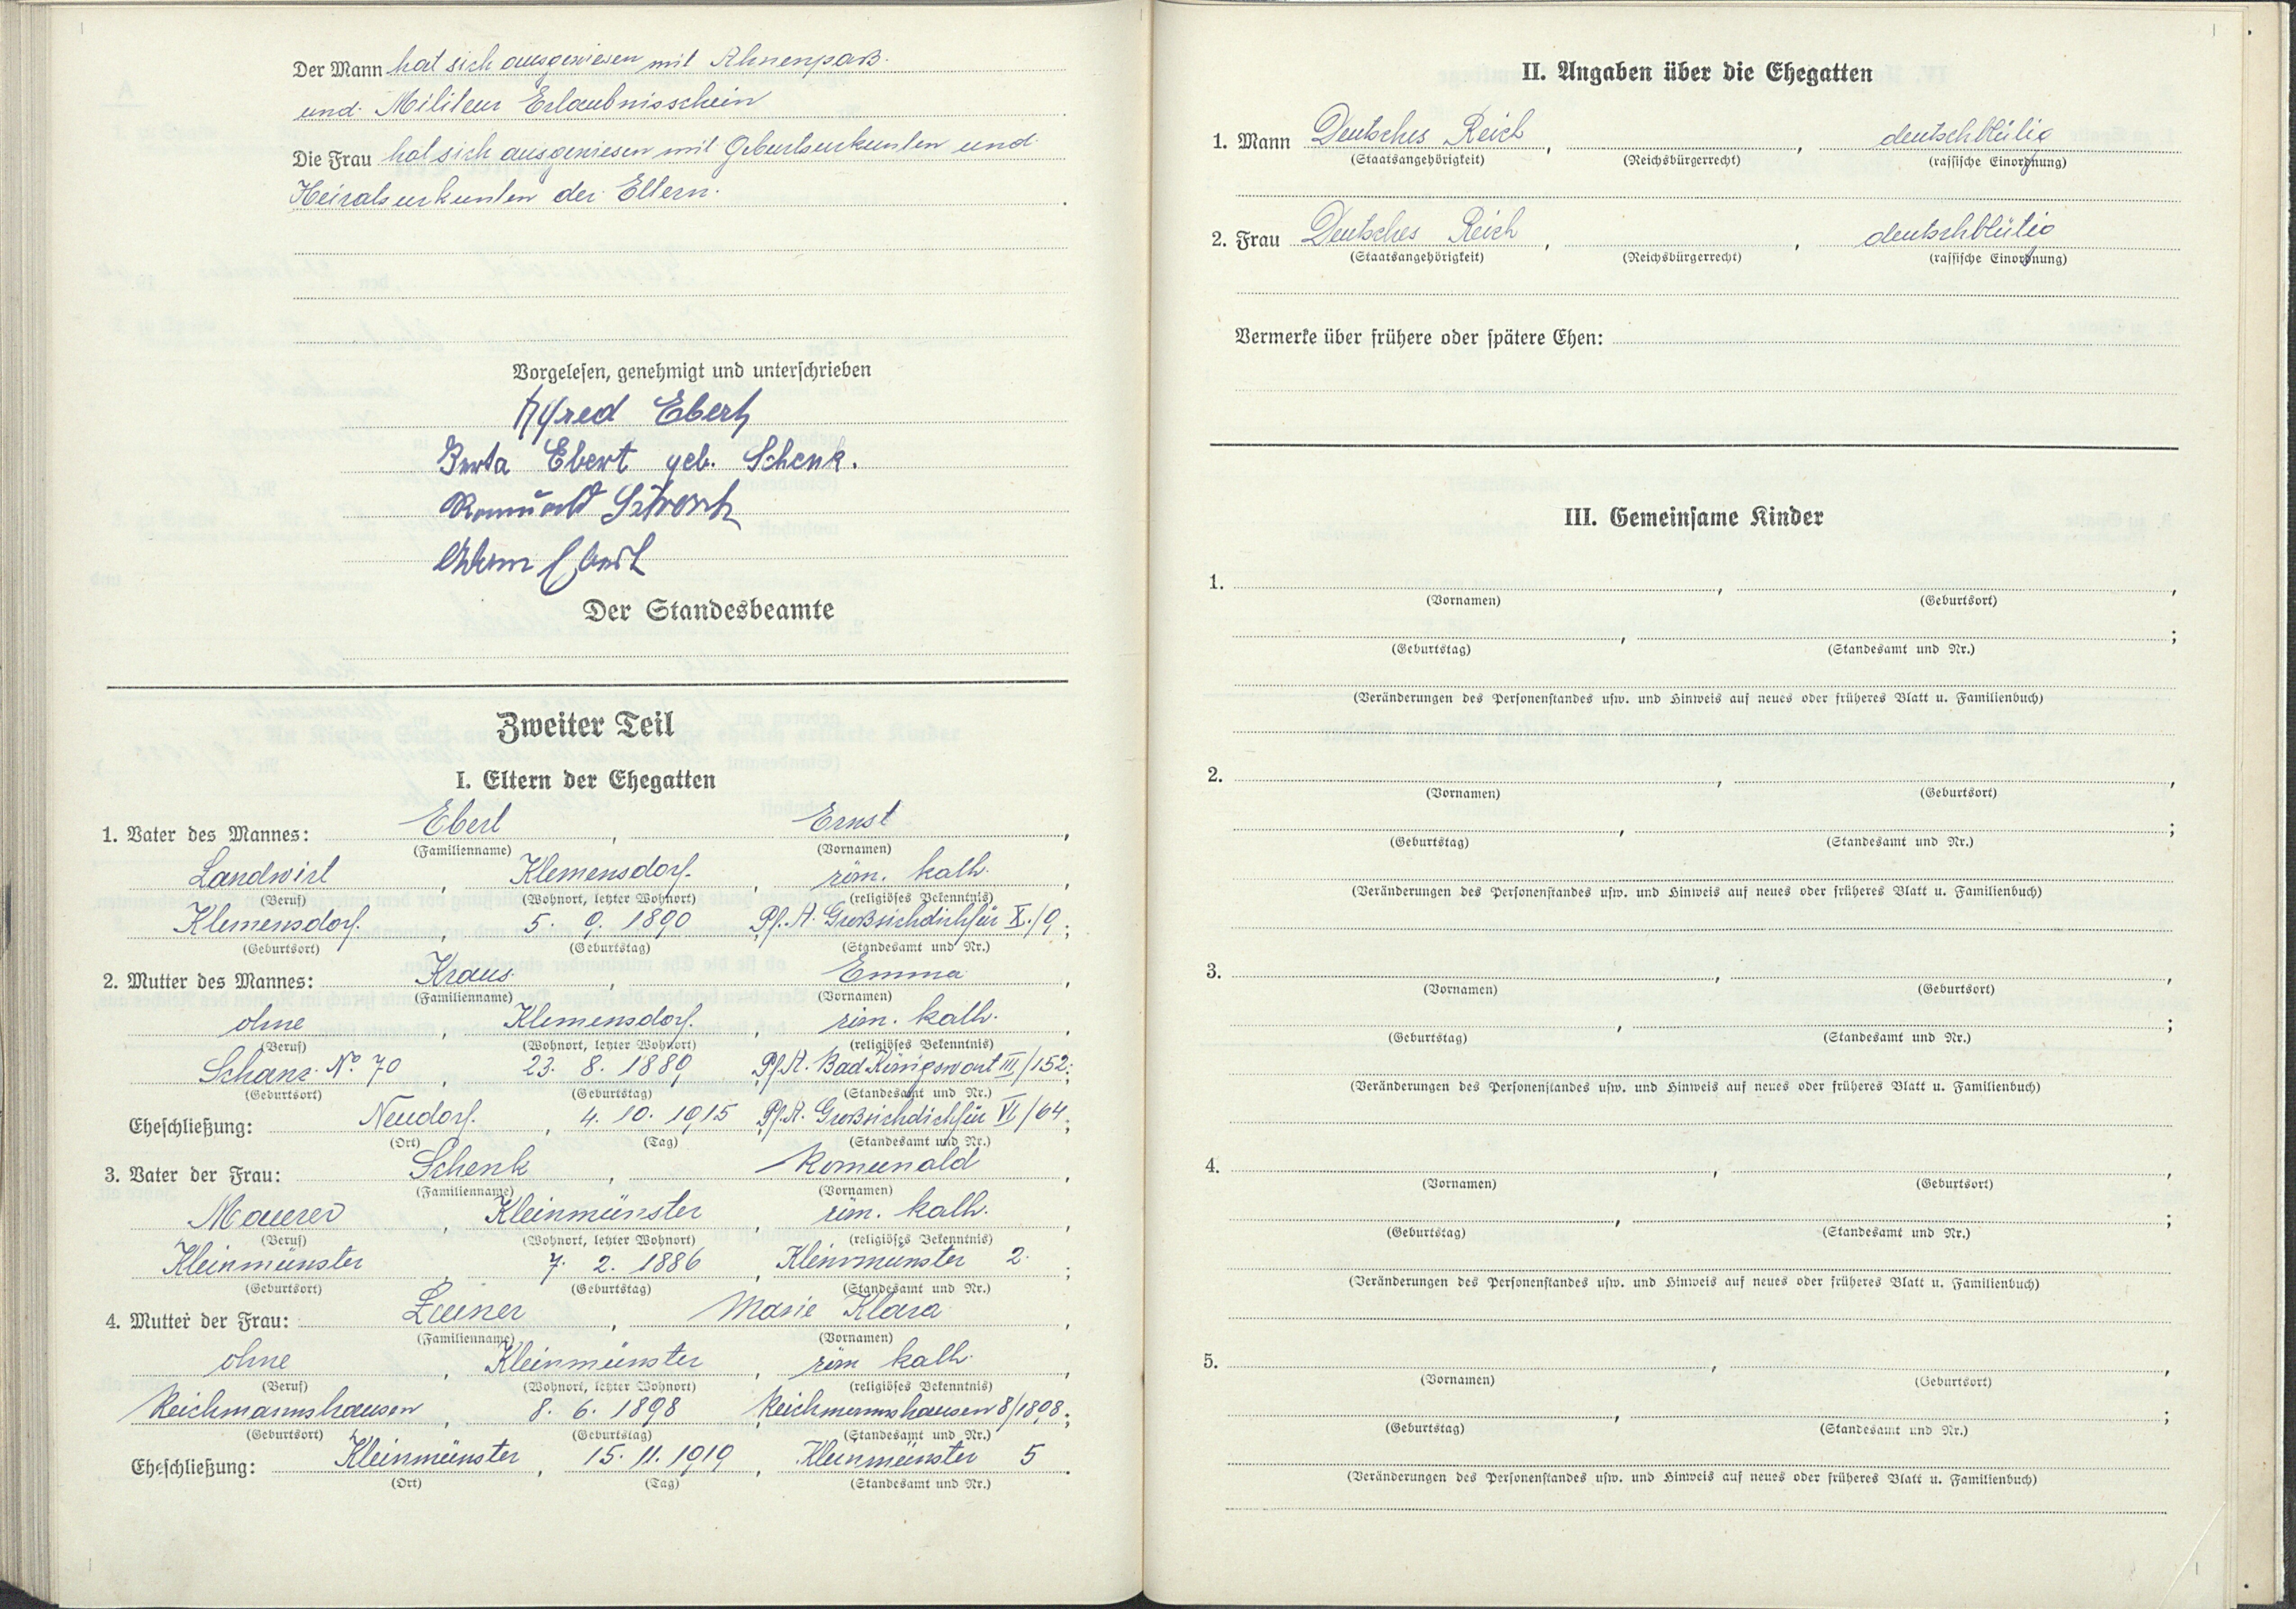 Der Mann hat sich ausgewiesen mit Ahnenpaß.
und Militär Erlaubnisschein
Die Frau hat sich ausgewiesen mit Geburtsurkunten und
Heiratsurkunten der Eltern.
Vorgelesen, genehmigt und unterschrieben
Alfred Ebert
Berta Ebert geb. Schenk.
Romuald
Ebert
Der Standesbeamte
Zweiter Teil
I. Eltern der Ehegatten
1. Vater des Mannes: Ebert, Ernst,
(Familienname) (Vornamen)
Landwirt, Klemensdorf, röm. kath.,
(Beruf) (Wohnort, letzter Wohnort) (religiöses Bekenntnis)
Klemensdorf, 5. 9. 1890 Pf. A. Großsichdichfür X./9;
(Geburtsort) (Geburtstag) (Standesamt und Nr.)
2. Mutter des Mannes: Kraus, Emma,
(Familienname) (Vornamen)
ohne, Klemensdorf, röm. kath.,
(Beruf) (Wohnort, letzter Wohnort) (religiöses Bekenntnis)
Schanz No. 70, 23. 8. 1889 Pf. A. Bad Königswart III/152;
(Geburtsort) (Geburtstag) (Standesamt und Nr.)
Eheschließung: Neudorf, 4. 10. 1915 Pf. A. Großsichdichfür VI/64;
(Ort) (Tag) (Standesamt und Nr.)
3. Vater der Frau: Schenk, Romuald,
(Familienname) (Vornamen)
Maurer, Kleinmünster, röm. kath.,
(Beruf) (Wohnort, letzter Wohnort) (religiöses Bekenntnis)
Kleinmünster, 7. 2. 1886, Kleinmünster 2;
(Geburtsort) (Geburtstag) (Standesamt und Nr.)
4. Mutter der Frau: , Marie Klara,
(Familienname) (Vornamen)
ohne, Kleinmünster, röm kath.,
(Beruf) (Wohnort, letzter Wohnort) (religiöses Bekenntnis)
Reichmannshausen, 8. 6. 1898, Reichmannshausen 8/1898;
(Geburtsort) (Geburtstag) (Standesamt und Nr.)
Eheschließung: Kleinmünster, 15. 11. 1919, Kleinmünster 5.
(Ort) (Tag) (Standesamt und Nr.)
II. Angaben über die Ehegatten
1. Mann Deutsches Reich, , deutschblütig
(Staatsangehörigkeit) (Reichsbürgerrecht) (rassische Einordnung)
2. Frau Deutsches Reich, , deutschblütig
(Staatsangehörigkeit) (Reichsbürgerrecht) (rassische Einordnung)
Vermerke über frühere oder spätere Ehen:
III. Gemeinsame Kinder
1. , ,
(Vornamen) (Geburtsort)
, ;
(Geburtstag) (Standesamt und Nr.)
(Veränderungen des Personenstandes usw. und Hinweis auf neues oder früheres Blatt u. Familienbuch)
2. , ,
(Vornamen) (Geburtsort)
, ;
(Geburtstag) (Standesamt und Nr.)
(Veränderungen des Personenstandes usw. und Hinweis auf neues oder früheres Blatt u. Familienbuch)
3. , ,
(Vornamen) (Geburtsort)
, ;
(Geburtstag) (Standesamt und Nr.)
(Veränderungen des Personenstandes usw. und Hinweis auf neues oder früheres Blatt u. Familienbuch)
4. , ,
(Vornamen) (Geburtsort)
, ;
(Geburtstag) (Standesamt und Nr.)
(Veränderungen des Personenstandes usw. und Hinweis auf neues oder früheres Blatt u. Familienbuch)
5. , ,
(Vornamen) (Geburtsort)
, ;
(Geburtstag) (Standesamt und Nr.)
(Veränderungen des Personenstandes usw. und Hinweis auf neues oder früheres Blatt u. Familienbuch)